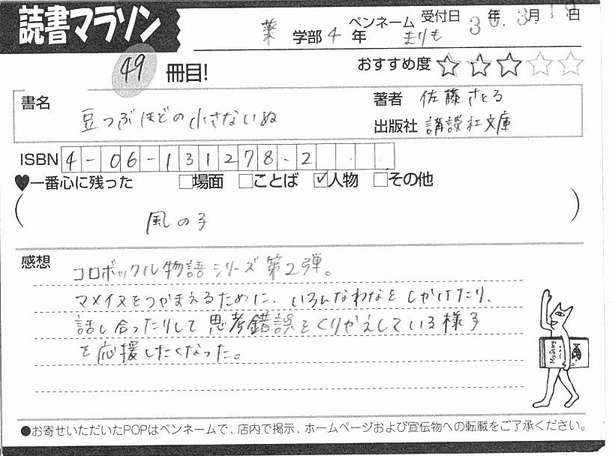 読書マラソン
薬 学部 4 年 ペンネーム まりも 受付日 30年 3月 日
49 冊目! おすすめ度 ☆☆☆☆☆
書名 豆つぶほどの小さないぬ
著者 佐藤さとる
出版社 講談社文庫
ISBN 4-06-131278-2
♥一番心に残った □場面 □ことば ☑人物 □その他
( 風の子 )
感想 コロボックル物語シリーズ第2弾。
マメイヌをつかまえるために、いろんなわなをしかけたり、
話し合ったりして思考錯誤をくりかえしている様子
を応援したくなった。
●お寄せいただいたPOPはペンネームで、店内で掲示、ホームページおよび宣伝物への転載をご了承ください。